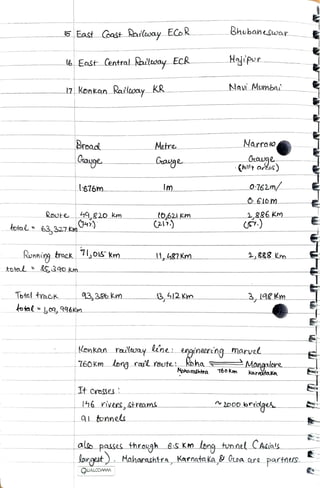 15 East Coast Railway ECoR Bhubaneswar
16 East Central Railway ECR Hajipur
17 Konkan Railway KR Navi Mumbai
Broad Metre Narrow
Gauge Gauge Gauge
(hilly areas)
1.676m 1m 0.762m/
0.610m
Route 49,820 km 10,621 km 2,886 km
total = 63,327 km (74%) (21%) (5%)
Running track 71,015 km 11,487 km 2,888 km
total = 85,390 km
Total track 93,386 km 13,412 km 3,198 km
total = 1,09,996 km
Konkan railway line: engineering marvel
760km long rail route: Roha Mangalore
Maharashtra 760km Karnataka
It crosses:
146 rivers, streams ~2000 bridges
91 tunnels
also passes through 6.5 km long tunnel (Asia's
largest). Maharashtra, Karnataka & Goa are partners.
QUALCOMM